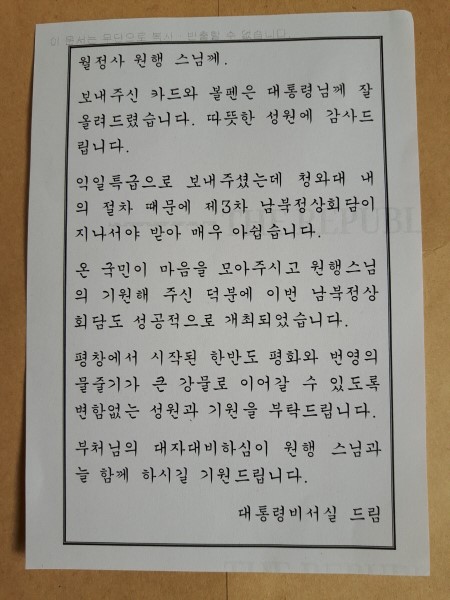 월정사 원행 스님께.
보내주신 카드와 볼펜은 대통령님께 잘
올려드렸습니다. 따뜻한 성원에 감사드
립니다.
익일특급으로 보내주셨는데 청와대 내
의 절차 때문에 제3차 남북정상회담이
지나서야 받아 매우 아쉽습니다.
온 국민이 마음을 모아주시고 원행스님
의 기원해 주신 덕분에 이번 남북정상
회담도 성공적으로 개최되었습니다.
평창에서 시작된 한반도 평화와 번영의
물줄기가 큰 강물로 이어갈 수 있도록
변함없는 성원과 기원을 부탁드립니다.
부처님의 대자대비하심이 원행 스님과
늘 함께 하시길 기원드립니다.
대통령비서실 드림